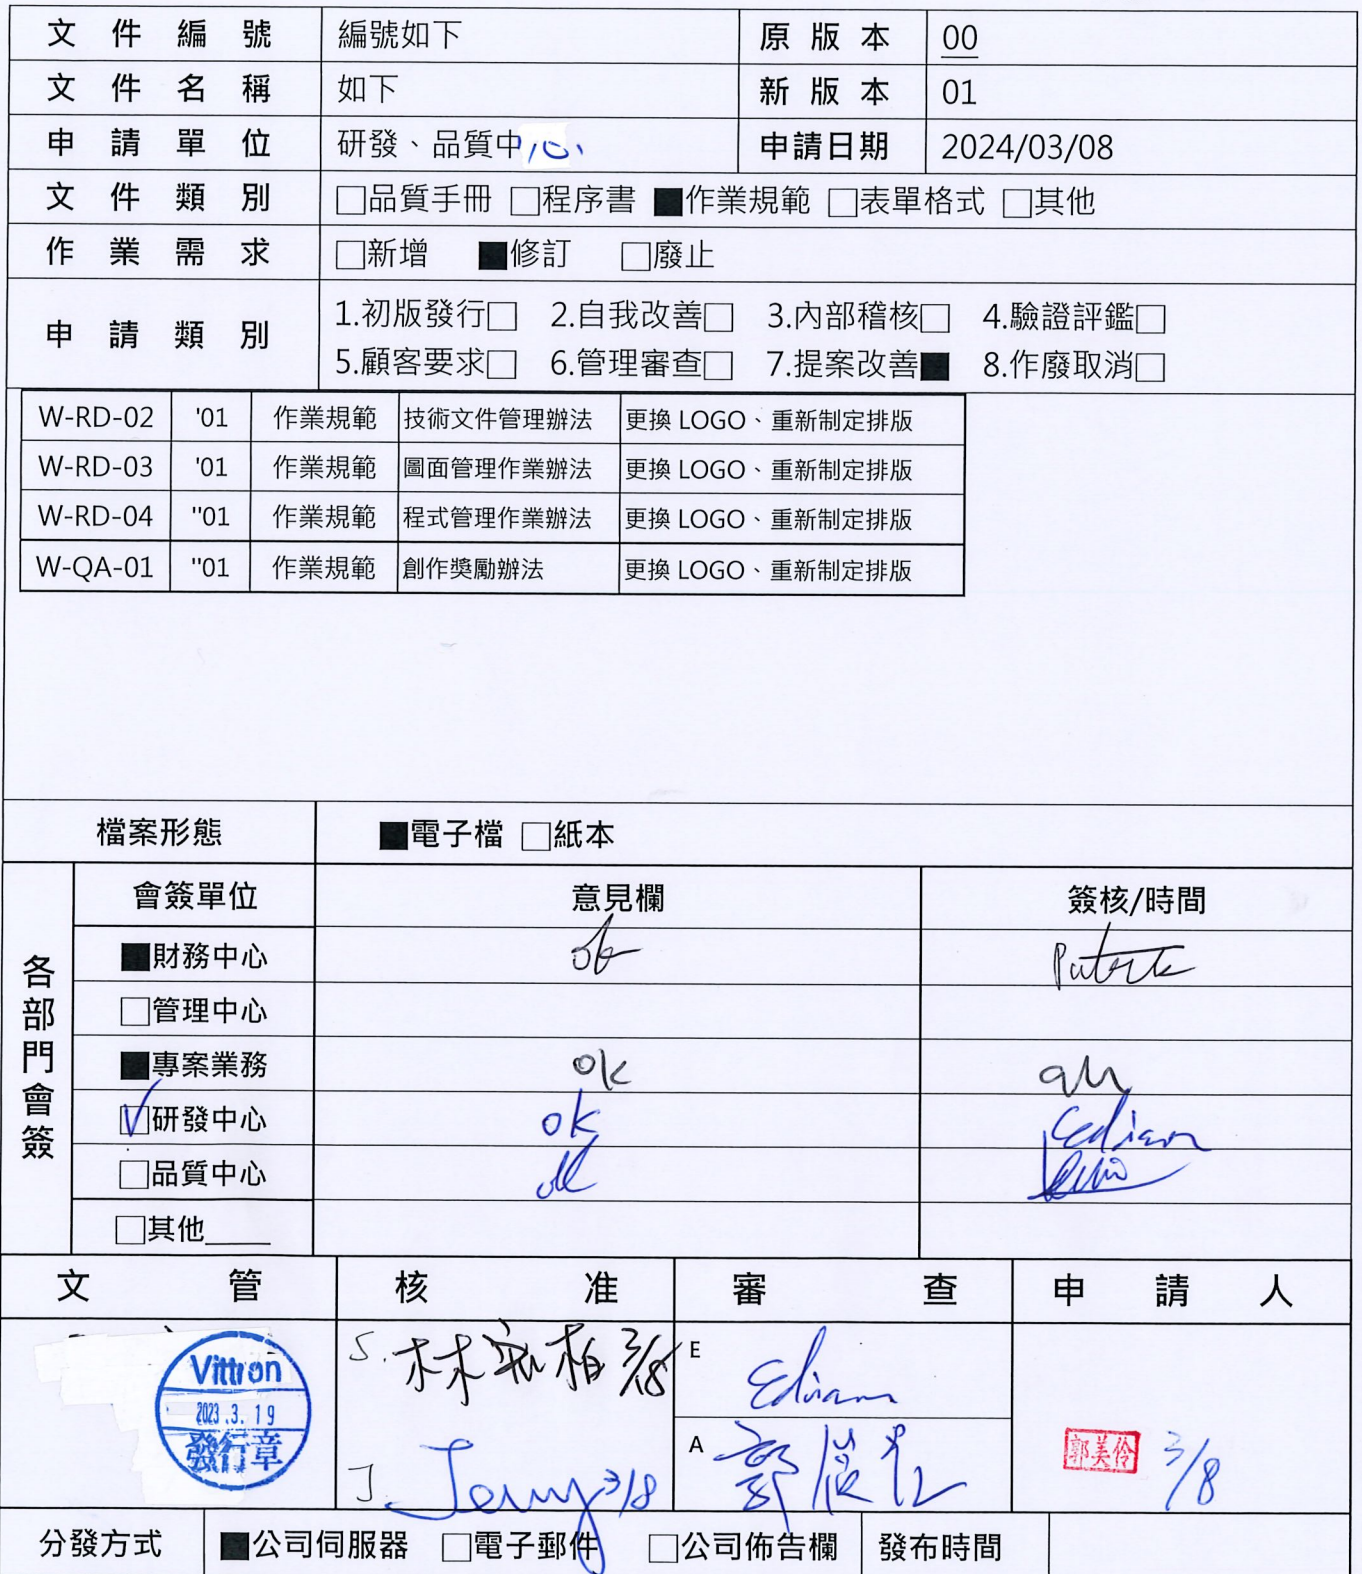 文件編號 編號如下 原版本 00
文件名稱 如下 新版本 01
申請單位 研發、品質中心 申請日期 2024/03/08
文件類別 □品質手冊 □程序書 ■作業規範 □表單格式 □其他
作業需求 □新增 ■修訂 □廢止
申請類別 1.初版發行□ 2.自我改善□ 3.內部稽核□ 4.驗證評鑑□
5.顧客要求□ 6.管理審查□ 7.提案改善■ 8.作廢取消□
W-RD-02 '01 作業規範 技術文件管理辦法 更換 LOGO、重新制定排版
W-RD-03 '01 作業規範 圖面管理作業辦法 更換 LOGO、重新制定排版
W-RD-04 "01 作業規範 程式管理作業辦法 更換 LOGO、重新制定排版
W-QA-01 "01 作業規範 創作獎勵辦法 更換 LOGO、重新制定排版
檔案形態 ■電子檔 □紙本
各部門會簽
會簽單位 意見欄 簽核/時間
■財務中心 ok
□管理中心
■專案業務 ok
☑研發中心 ok Ediann
□品質中心 ok
□其他____
文管 核准 審查 申請人
Vittron
2023.3.19
發行章
S. 3/18
J. 3/8
E
A
郭美伶 3/8
分發方式 ■公司伺服器 □電子郵件 □公司佈告欄 發布時間